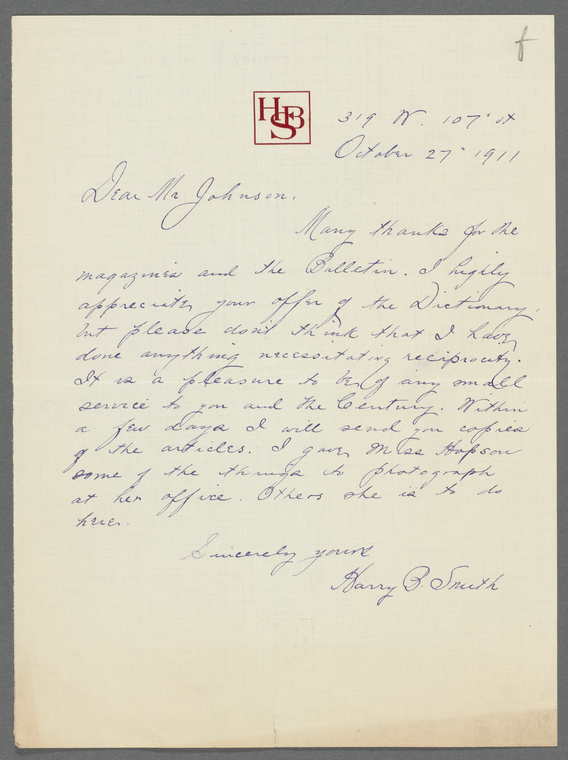 f
HBS
319 W. 107" st
October 27" 1911
Dear Mr Johnson.
Many thanks for the
magazines and the Bulletin. I highly
appreciate your offer of the Dictionary,
but please don't think that I have
done anything necessitating reciprocity.
It is a pleasure to be of any small
service to you and the Century. Within
a few days I will send you copies
of the articles. I gave Miss Hopson
some of the things to photograph
at her office. Others she is to do
here.
Sincerely yours
Harry B. Smith